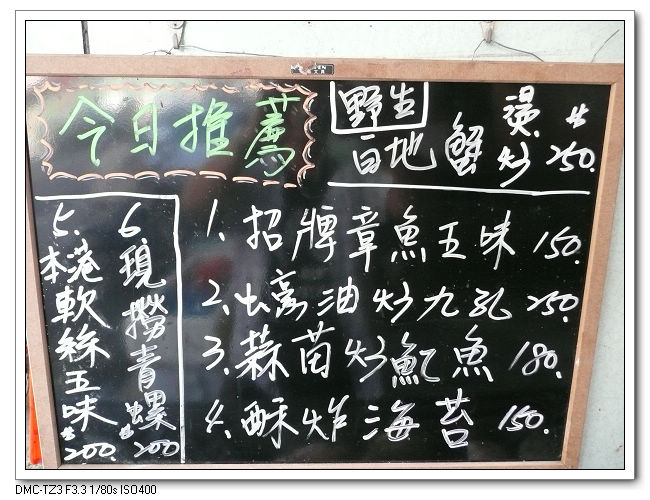 今日推薦
野生
百地蟹
燙
炒 250.
1. 招牌章魚五味 150.
2. 蠔油炒九孔 250.
3. 蒜苗炒魟魚 180.
4. 酥炸海苔 150.
5. 本港軟絲五味 200.
6. 現撈青螺 200
DMC-TZ3 F3.3 1/80s ISO400